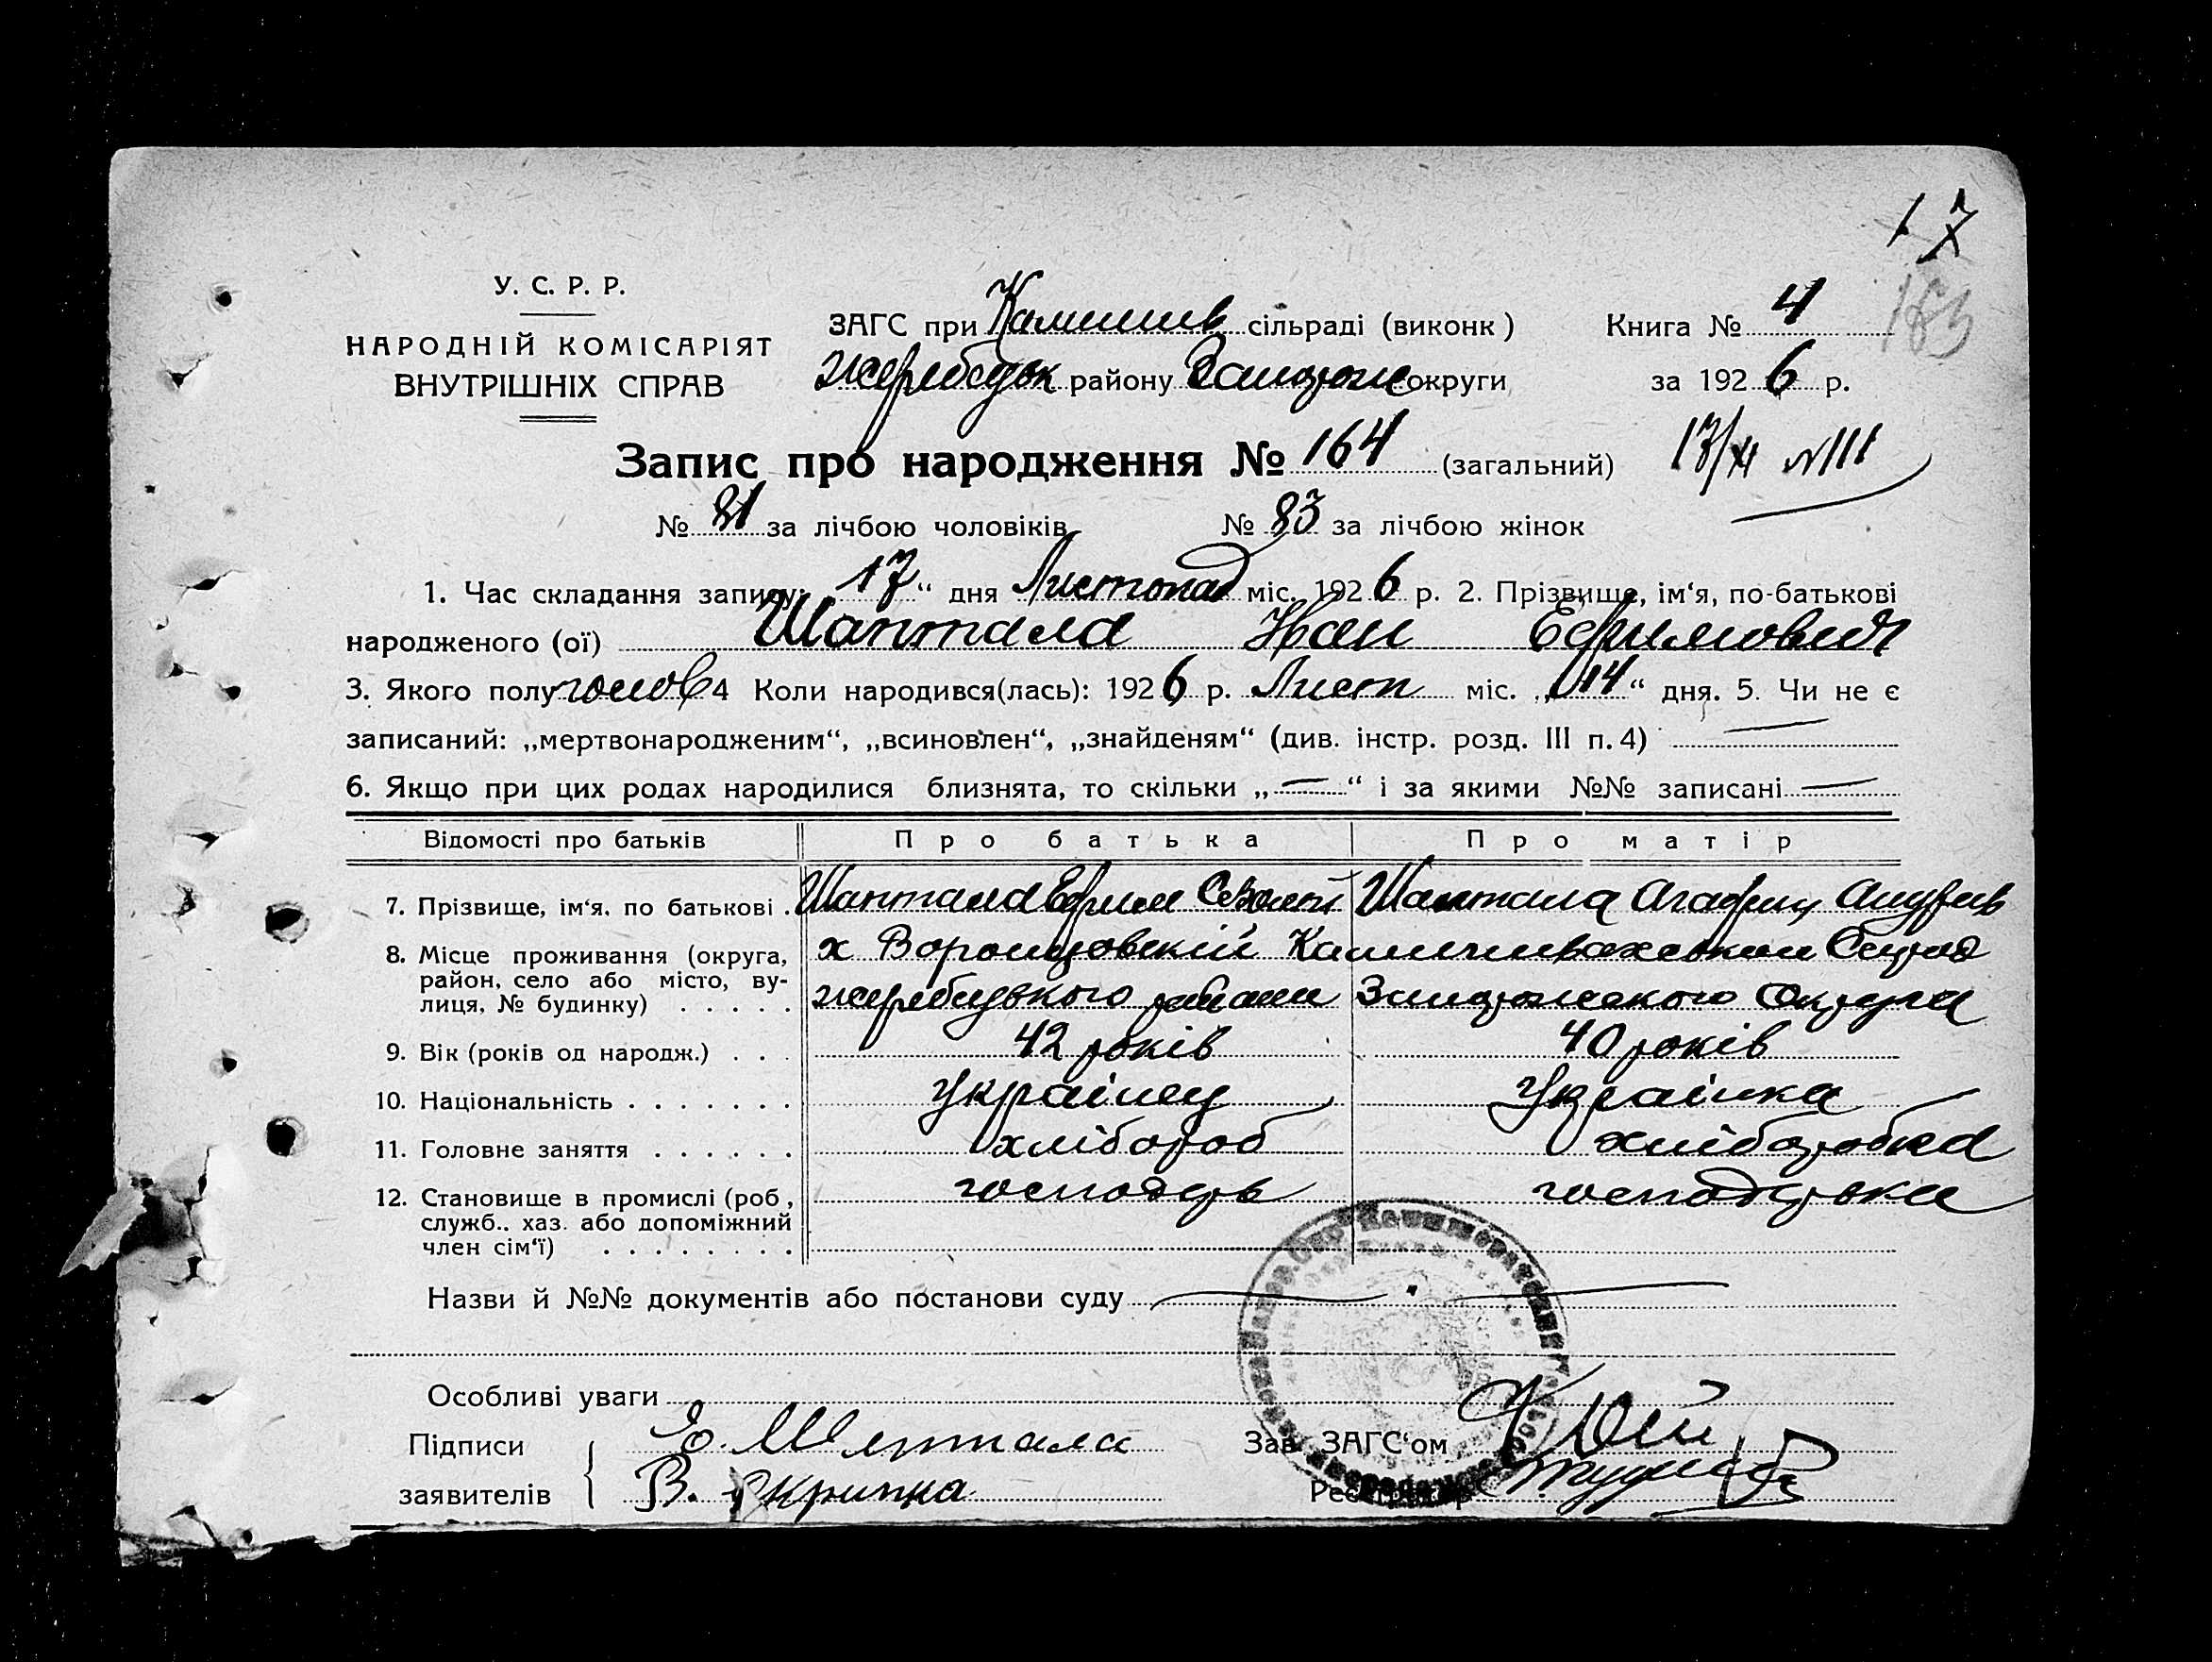 17
183
У. С. Р. Р.
НАРОДНІЙ КОМІСАРІЯТ
ВНУТРІШНІХ СПРАВ
ЗАГС при Камишев сільраді (виконк)
Жеребецьк району Запорож округи
Книга № 4
за 1926 р.
Запис про народження № 164 (загальний)
17/XI №111
№ 81 за лічбою чоловіків № 83 за лічбою жінок
1. Час складання запису: 17“ дня Листопад міс. 1926 р. 2. Прізвище, ім‘я, по-батькові
народженого (ої) Шаптала Иван Ефимович
3. Якого полу чолов 4 Коли народився(лась): 1926 р. Лист міс. „14“ дня. 5. Чи не є
записаний: „мертвонародженим“, „всиновлен“, „знайденям“ (див. інстр. розд. III п. 4) —
6. Якщо при цих родах народилися близнята, то скільки „—“ і за якими №№ записані —
Відомості про батьків Про батька Про матір
7. Прізвище, ім‘я, по батькові . Шаптала Ефим Шаптала Агафия
8. Місце проживання (округа,
район, село або місто, ву-
лиця, № будинку) . . . . .
х Воронцовский Камишевахськой
жеребецького району Запорожського Округа
9. Вік (років од народж.) . . . 42 років 40 років
10. Національність . . . . . . . українец Українка
11. Головне заняття . . . . . . хлібороб хлібороbка
12. Становище в промислі (роб,
служб.. хаз. або допоміжний
член сім‘ї) . . . . . . . .
господарь господарька
Назви й №№ документів або постанови суду
Особливі уваги
Підписи Е. Шаптала
заявителів В. Скрипка
Зав. ЗАГС‘ом
Реєстратор